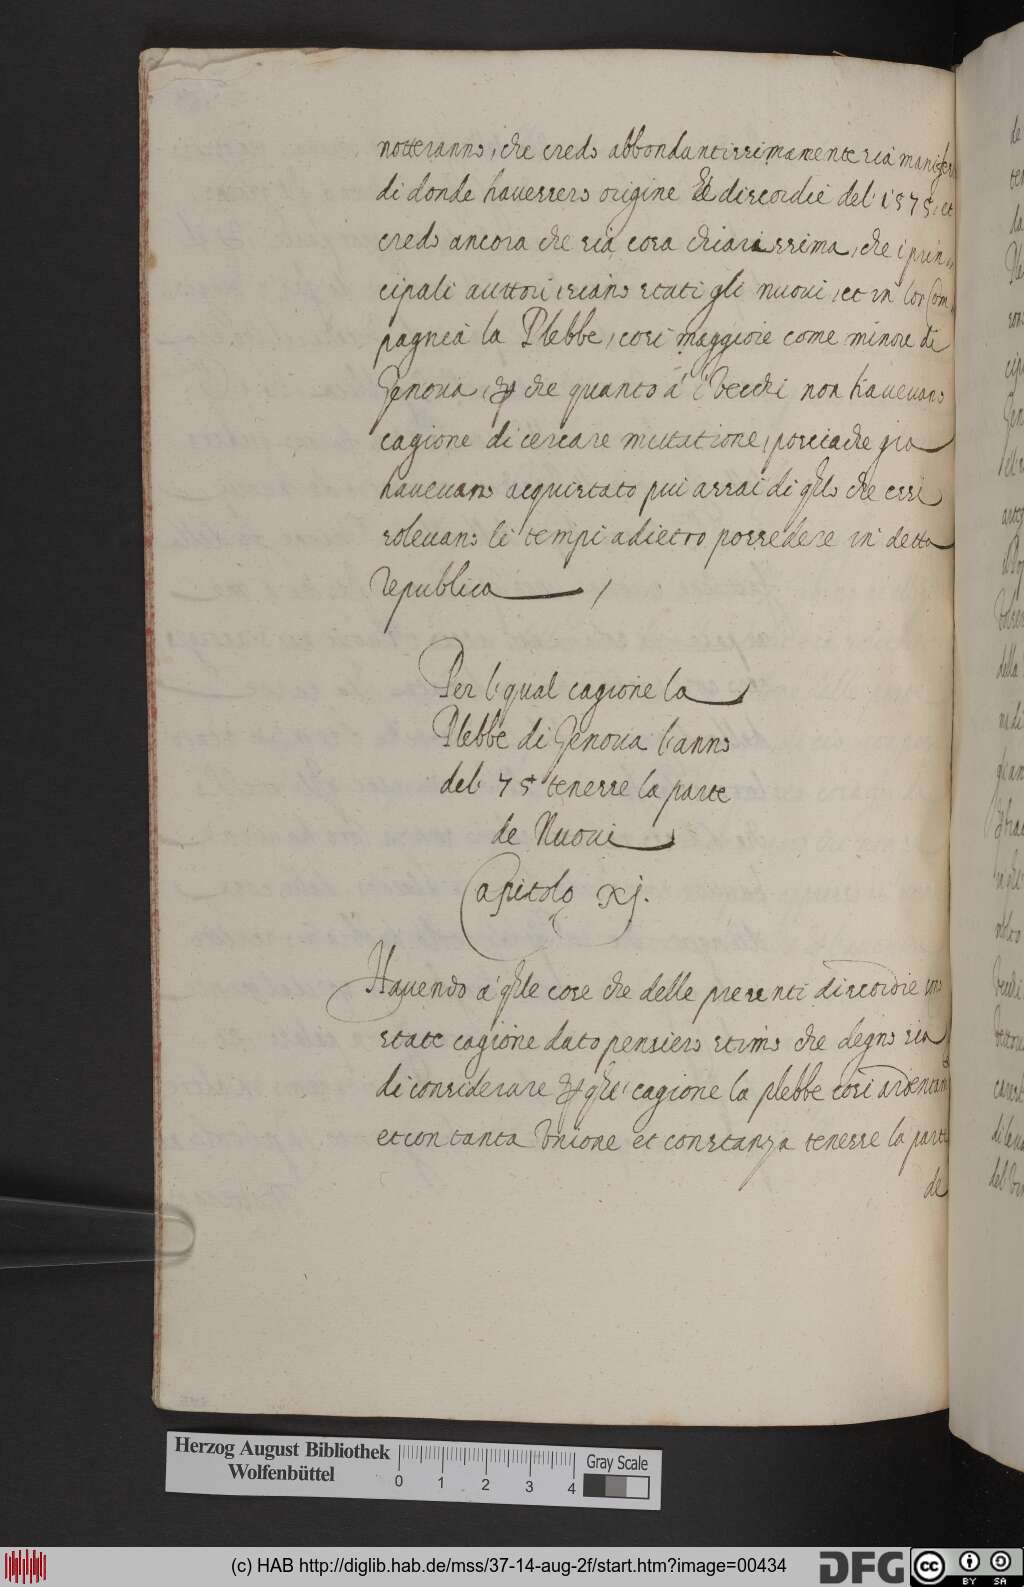 notteranno, che credo abbondantissimamente sia manifesto
di donde havessero origine le discordie del 1575, et
credo ancora che sia cosa chiarissima, che i prin
cipali auttori, siano stati gli nuovi, et in lor Com
pagnia la Plebbe, cosi maggiore come minore di
Genova, et che quanto a' i Vecchi non havevano
cagione di cercare mutatione, posciache gia
havevano acquistato piu assai di qllo che essi
solevano li tempi adietro possedere in detta
republica /
Per l' qual cagione la
Plebbe di Genova l'anno
del 75 tenesse la parte
de Nuovi
Capitolo xj.
Havendo a' qlle cose che delle presenti discordie sono
state cagione dato pensiero stimo che degno sia
di considerare p qle cagione la plebbe cosi ardentamte
et con tanta Unione et constanza tenesse la parte
de
Herzog August Bibliothek
Wolfenbüttel
0 1 2 3 4
Gray Scale
(c) HAB http://diglib.hab.de/mss/37-14-aug-2f/start.htm?image=00434
DFG
cc BY SA